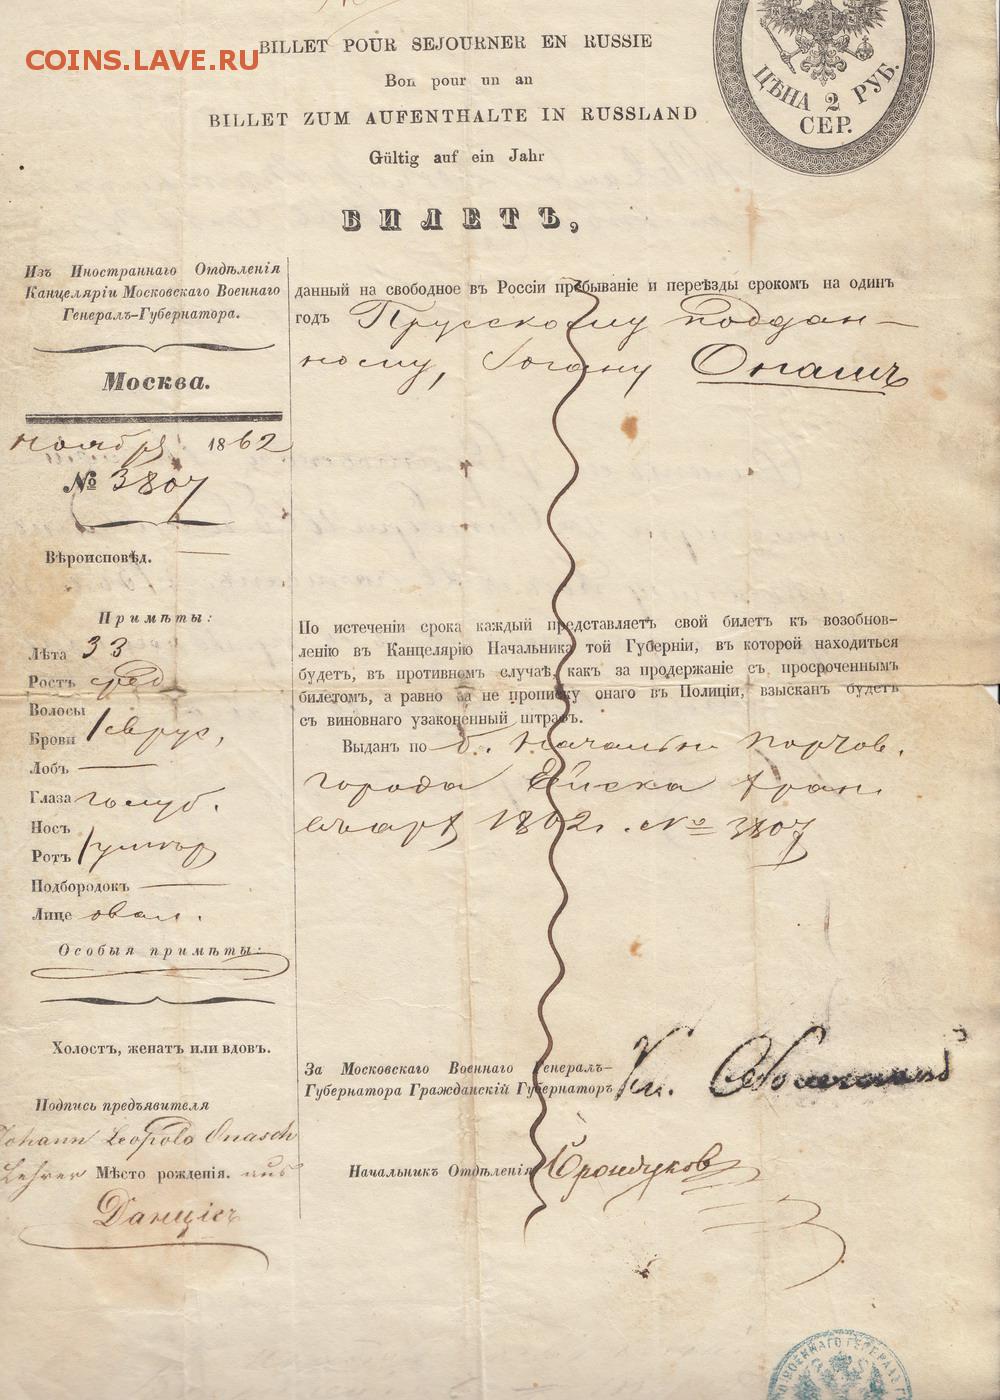 COINS.LAVE.RU
BILLET POUR SEJOURNER EN RUSSIE
Bon pour un an
BILLET ZUM AUFENTHALTE IN RUSSLAND
Gültig auf ein Jahr
ЦѢНА 2 РУБ.
СЕР.
БИЛЕТЪ,
Изъ Иностраннаго Отдѣленія
Канцеляріи Московскаго Военнаго
Генералъ-Губернатора.
Москва.
ноября 1862
№ 3807
Вѣроисповѣд.
Примѣты:
Лѣта 33
Ростъ сред
Волосы
Брови
Лобъ
Глаза голуб.
Носъ
Ротъ
Подбородокъ
Лице овал.
Особыя примѣты:
Холостъ, женатъ или вдовъ.
Подпись предъявителя
Johann Leopold Onasch
Lehrer Мѣсто рожденія. aus
Данцигъ
данный на свободное въ Россіи пребываніе и переѣзды срокомъ на одинъ
годъ Прусскому поддан-
ному, Іогану Онашъ
По истеченіи срока каждый представляетъ свой билетъ къ возобнов-
ленію въ Канцелярію Начальника той Губерніи, въ которой находиться
будетъ, въ противномъ случаѣ, какъ за продержаніе съ просроченнымъ
билетомъ, а равно за не прописку онаго въ Полиціи, взысканъ будетъ
съ виновнаго узаконенный штрафъ.
Выданъ по б. Начальн.
города Ейска
1862г. № 3807
За Московскаго Военнаго Генералъ-
Губернатора Гражданскій Губернаторъ Кн.
Начальникъ Отдѣленія
ВОЕННАГО ГЕНЕРАЛЪ